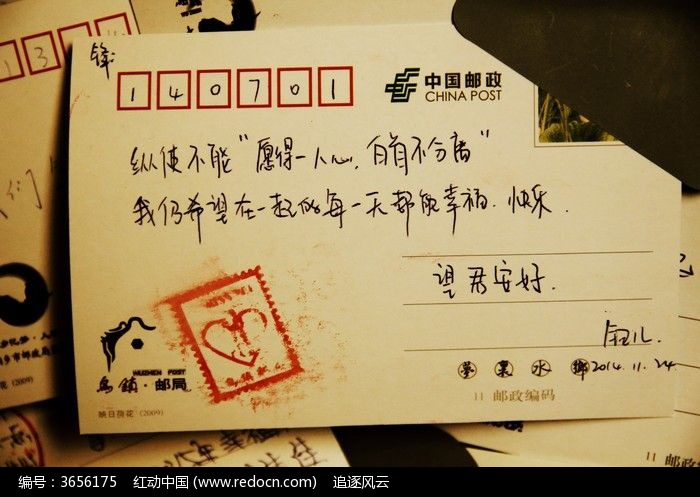 锋:
140701
中国邮政
CHINA POST
纵使不能“愿得一人心,白首不分离”
我仍希望在一起的每一天都能幸福、快乐.
望君安好.
梦裏水鄉 2014.11.24
WUZHEN POST
烏鎮·邮局
映日荷花 (2009)
11 邮政编码
(2009)
11 邮政编
编号:3656175 红动中国 (www.redocn.com) 追逐风云